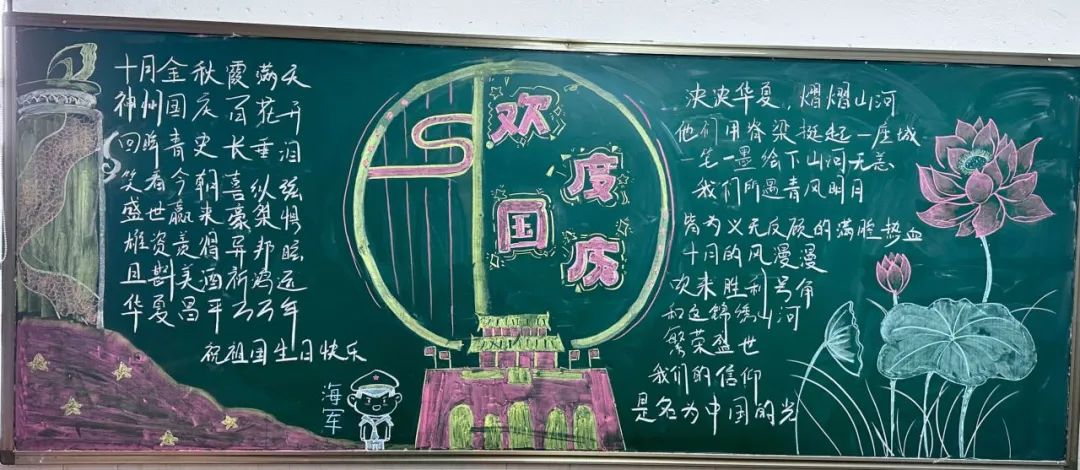 十月金秋霞满天
神州国庆百花开
回眸青史长垂泪
笑看今朝喜纵弦
盛世赢来豪桀惧
雄资羡得异邦眩
且斟美酒祈鸿运
华夏昌平万万年
祝祖国生日快乐
海军
欢度国庆
泱泱华夏，熠熠山河
他们用脊梁挺起一座城
一笔一墨绘下山河无恙
我们所遇青风明月
皆为义无反顾的满腔热血
十月的风漫漫
吹来胜利号角
和这锦绣山河
繁荣盛世
我们的信仰
是名为中国的光